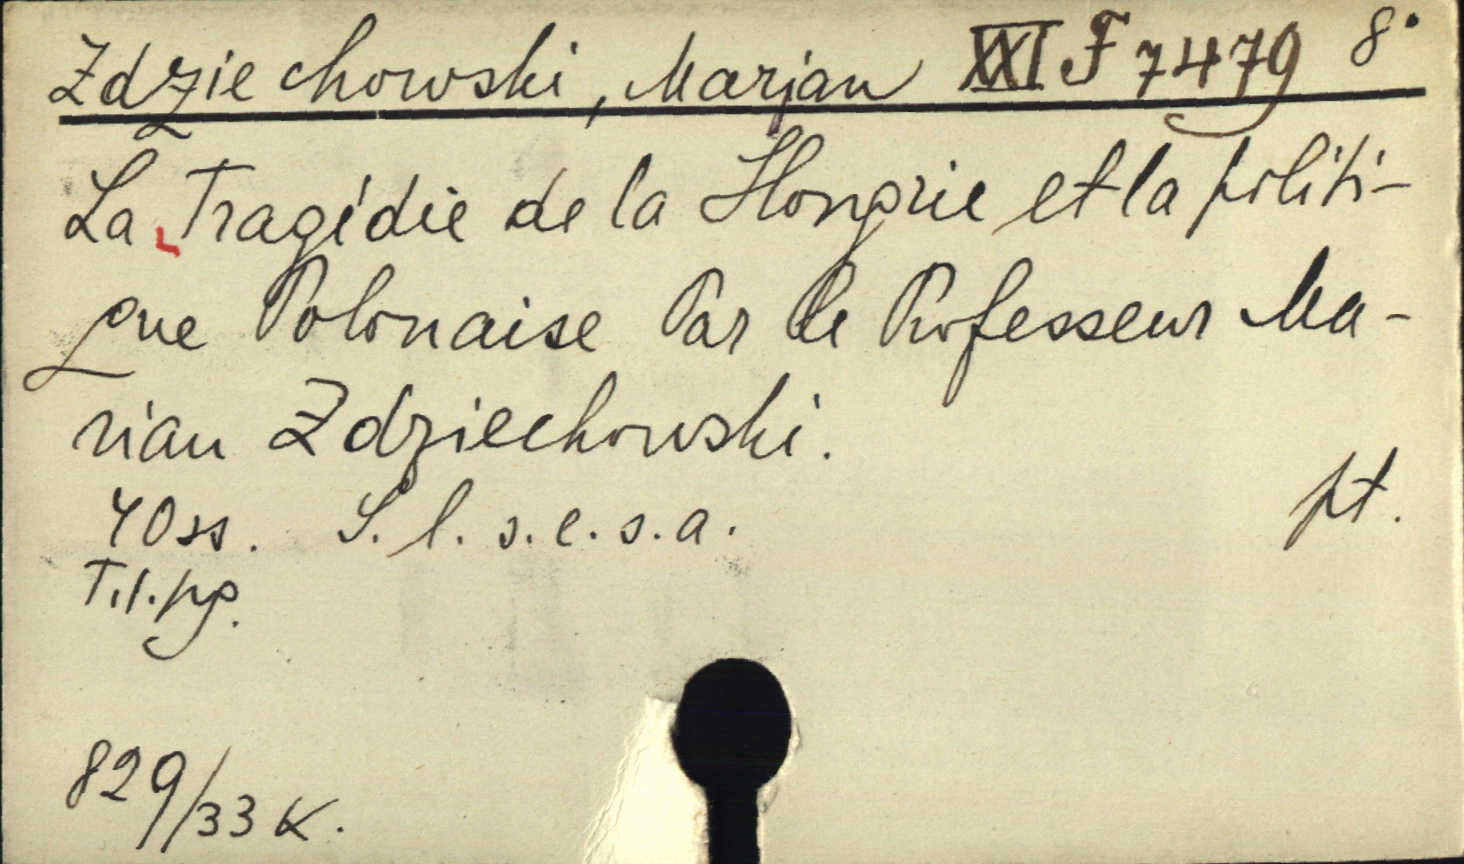 Zdziechowski, Marjan XXI F 7479 8°
La Tragédie de la Hongrie et la politi-
que Polonaise Par le Professeur Ma-
rian Zdziechowski.
40 ss. S. l. s. e. s. a. pt.
T. l. pg.
829/33 K.